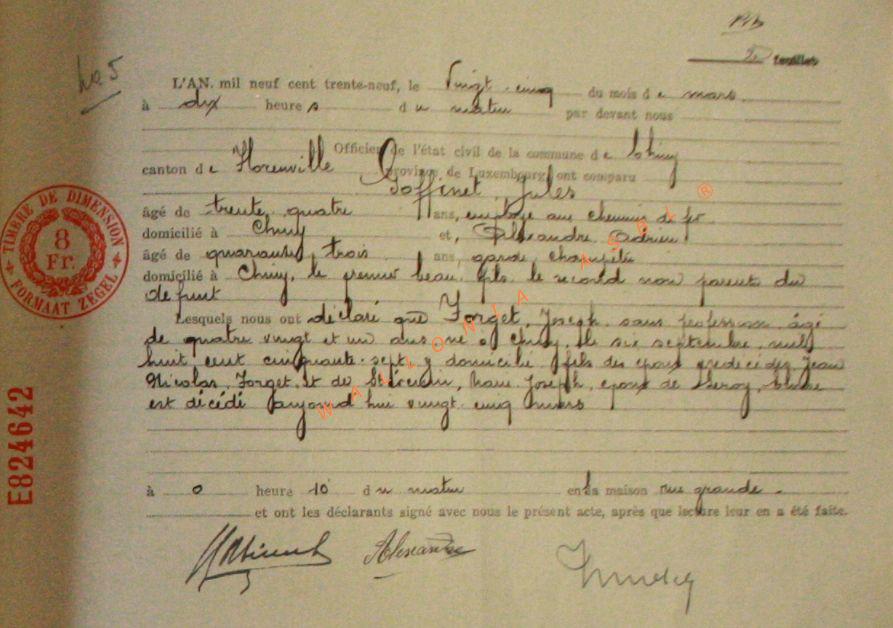 No 5
2 feuillet
L'AN. mil neuf cent trente-neuf, le Vingt-cinq du mois de mars
à dix heures du matin par devant nous
Officier de l'état civil de la commune de Chiny
canton de Florenville province de Luxembourg ont comparu
Goffinet, Jules
âgé de trente quatre ans, employé aux chemin de fer
domicilié à Chiny et, Alexandre Adrien
âgé de quarante trois ans, garde champêtre
domicilié à Chiny, le premier beau-fils le second non parents du
défunt
Lesquels nous ont déclaré que Forget, Joseph sans profession âgé
de quatre vingt et un ans né à Chiny, le six septembre mil
huit cent cinquante-sept y domicilié fils des époux prédécédés Jean
Nicolas Forget, et de Marie Joseph, époux de Leroy,
est décédé aujourd'hui vingt cinq mars
à 0 heure 10 du matin en la maison rue grande
et ont les déclarants signé avec nous le présent acte, après que lecture leur en a été faite.
Alexandre
TIMBRE DE DIMENSION
8
Fr.
FORMAAT ZEGEL
E824642
WALLONIA ASBL ®